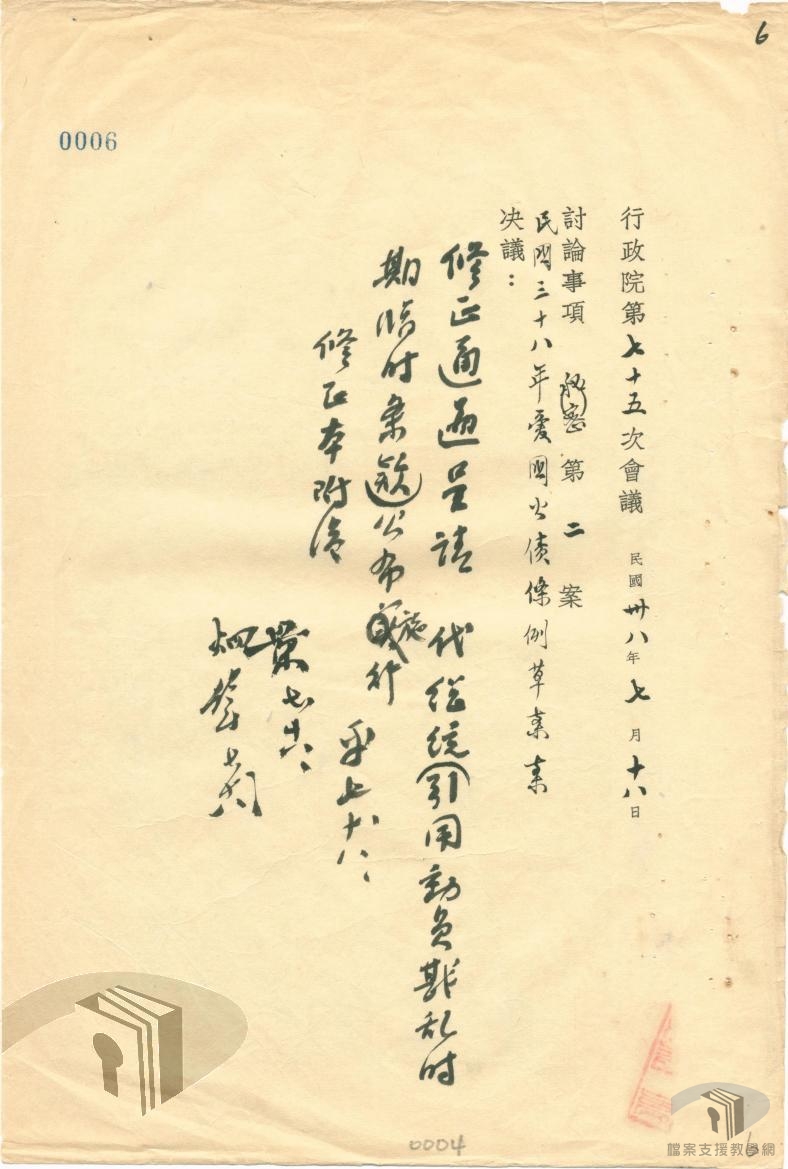 6
0006
行政院第七十五次會議 民國卅八年七月十八日
討論事項 秘密第二案
民國三十八年愛國公債條例草案案
决議：
修正通過呈請 代總統引用動員戡乱时
期临时条款公布施行
修正本附後
七十八、
0004
6
檔案支援教學網